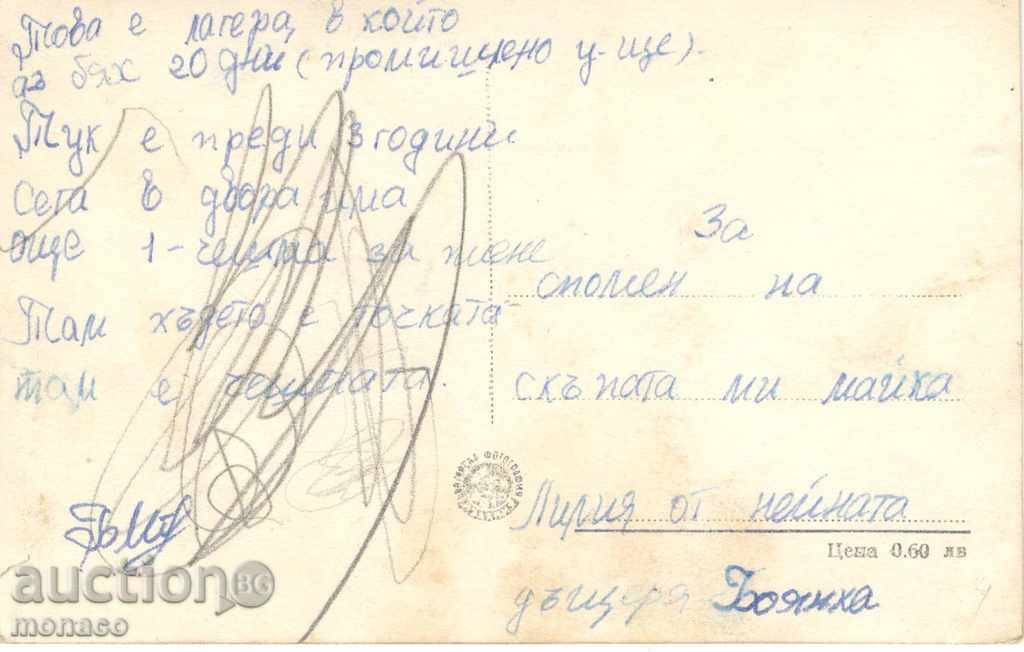 Това е лагера, в който
аз бях 20 дни (промишлено у-ще).
Тук е преди 3 години
Сега в двора има
още 1-чешма за пиене
Там където е точката
там е чешмата.
За
спомен на
скъпата ми майка
Лирия от нейната
Цена 0.60 лв
дъщеря Боянка
БЪЛГАРСКА ФОТОГРАФИЯ
auction.BG
monaco